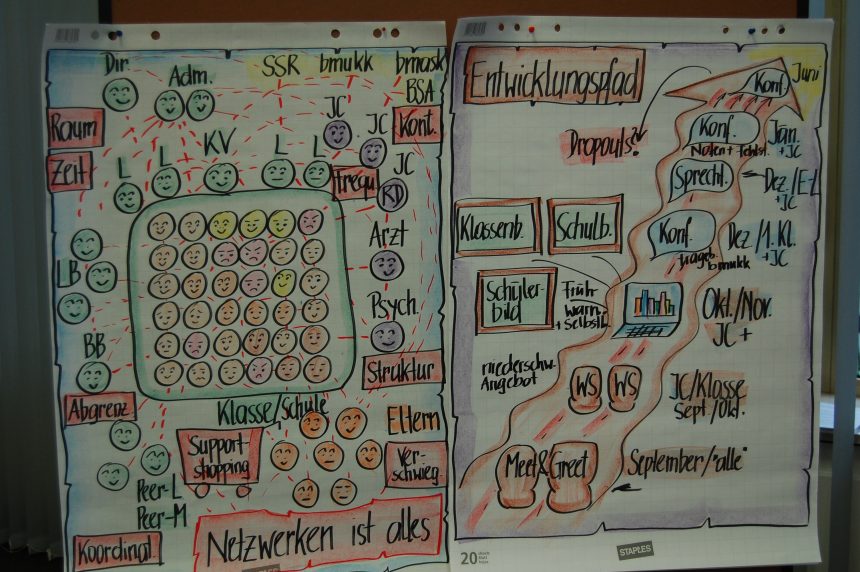 Dir
Adm.
SSR
bmukk
bmask
BSA
Raum
Zeit
L
L
KV
L
L
JC
JC
JC
Kont.
Frequ.
RD
Arzt
LB
Psych.
BB
Struktur
Abgrenz
Klasse/Schule
Eltern
Support-
shopping
Ver-
schwieg.
Peer-L
Peer-M
Koordinat.
Netzwerken ist alles
STAPLES
Entwicklungspfad
Konf.
Juni
Dropouts?
Konf.
Noten +
Jän.
+JC
Sprecht.
Dez./E-L
+JC
Klassenb.
Schulb.
Konf.
bmukk
Dez./1.Kl.
+JC
Schüler-
bild
Früh-
warn.
+ Selbstl.
Okt./Nov.
JC +
niederschw.
Angebot
WS
WS
JC/Klasse
Sept./Okt.
Meet & Greet
September/"alle"
20
STAPLES